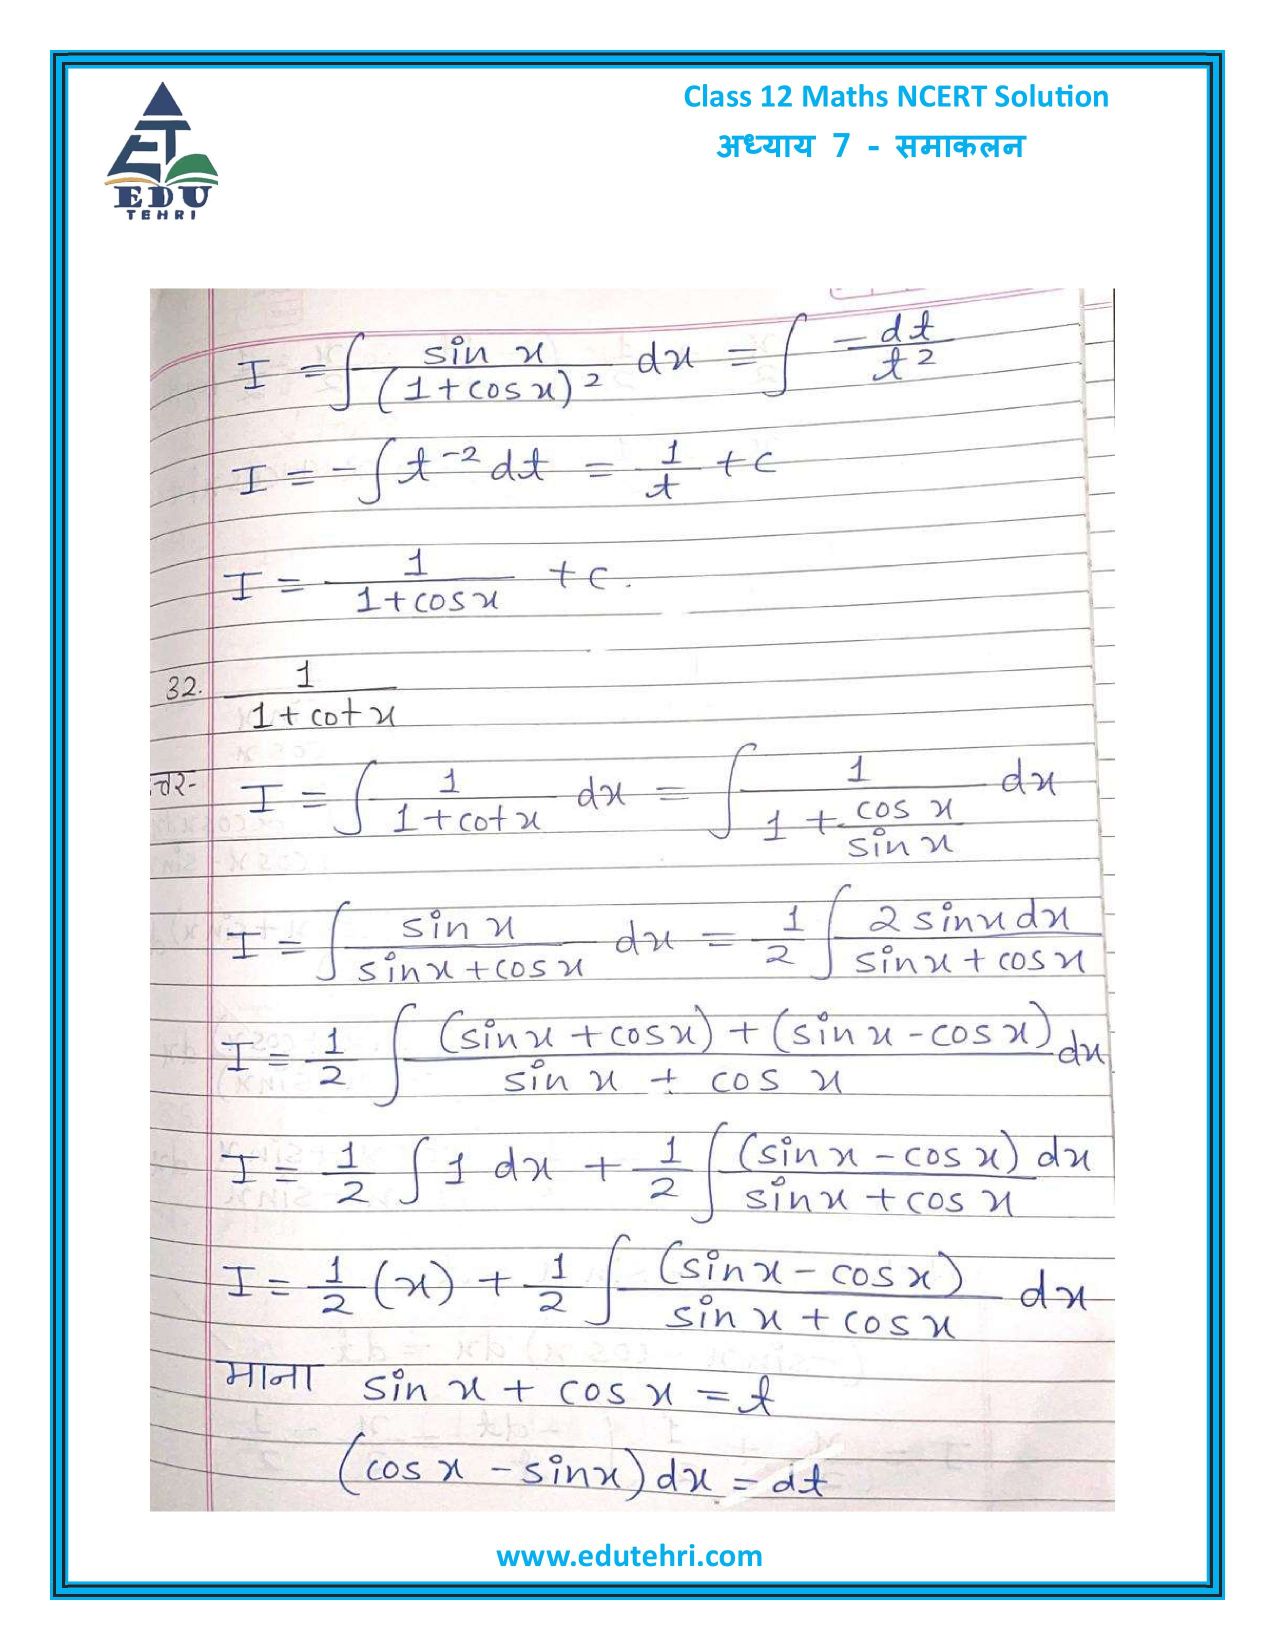 Class 12 Maths NCERT Solution
अध्याय 7 - समाकलन
EDU
TEHRI
I = ∫ sin x / (1+cos x)² dx = ∫ -dt / t²
I = -∫ t⁻² dt = 1/t + c
I = 1 / (1+cos x) + c.
32. 1 / (1+cot x)
त्तर- I = ∫ 1 / (1+cot x) dx = ∫ 1 / (1 + cos x / sin x) dx
I = ∫ sin x / (sin x + cos x) dx = 1/2 ∫ 2 sin x dx / (sin x + cos x)
I = 1/2 ∫ (sin x + cos x) + (sin x - cos x) / (sin x + cos x) dx
I = 1/2 ∫ 1 dx + 1/2 ∫ (sin x - cos x) dx / (sin x + cos x)
I = 1/2 (x) + 1/2 ∫ (sin x - cos x) / (sin x + cos x) dx
माना sin x + cos x = t
(cos x - sin x) dx = dt
www.edutehri.com